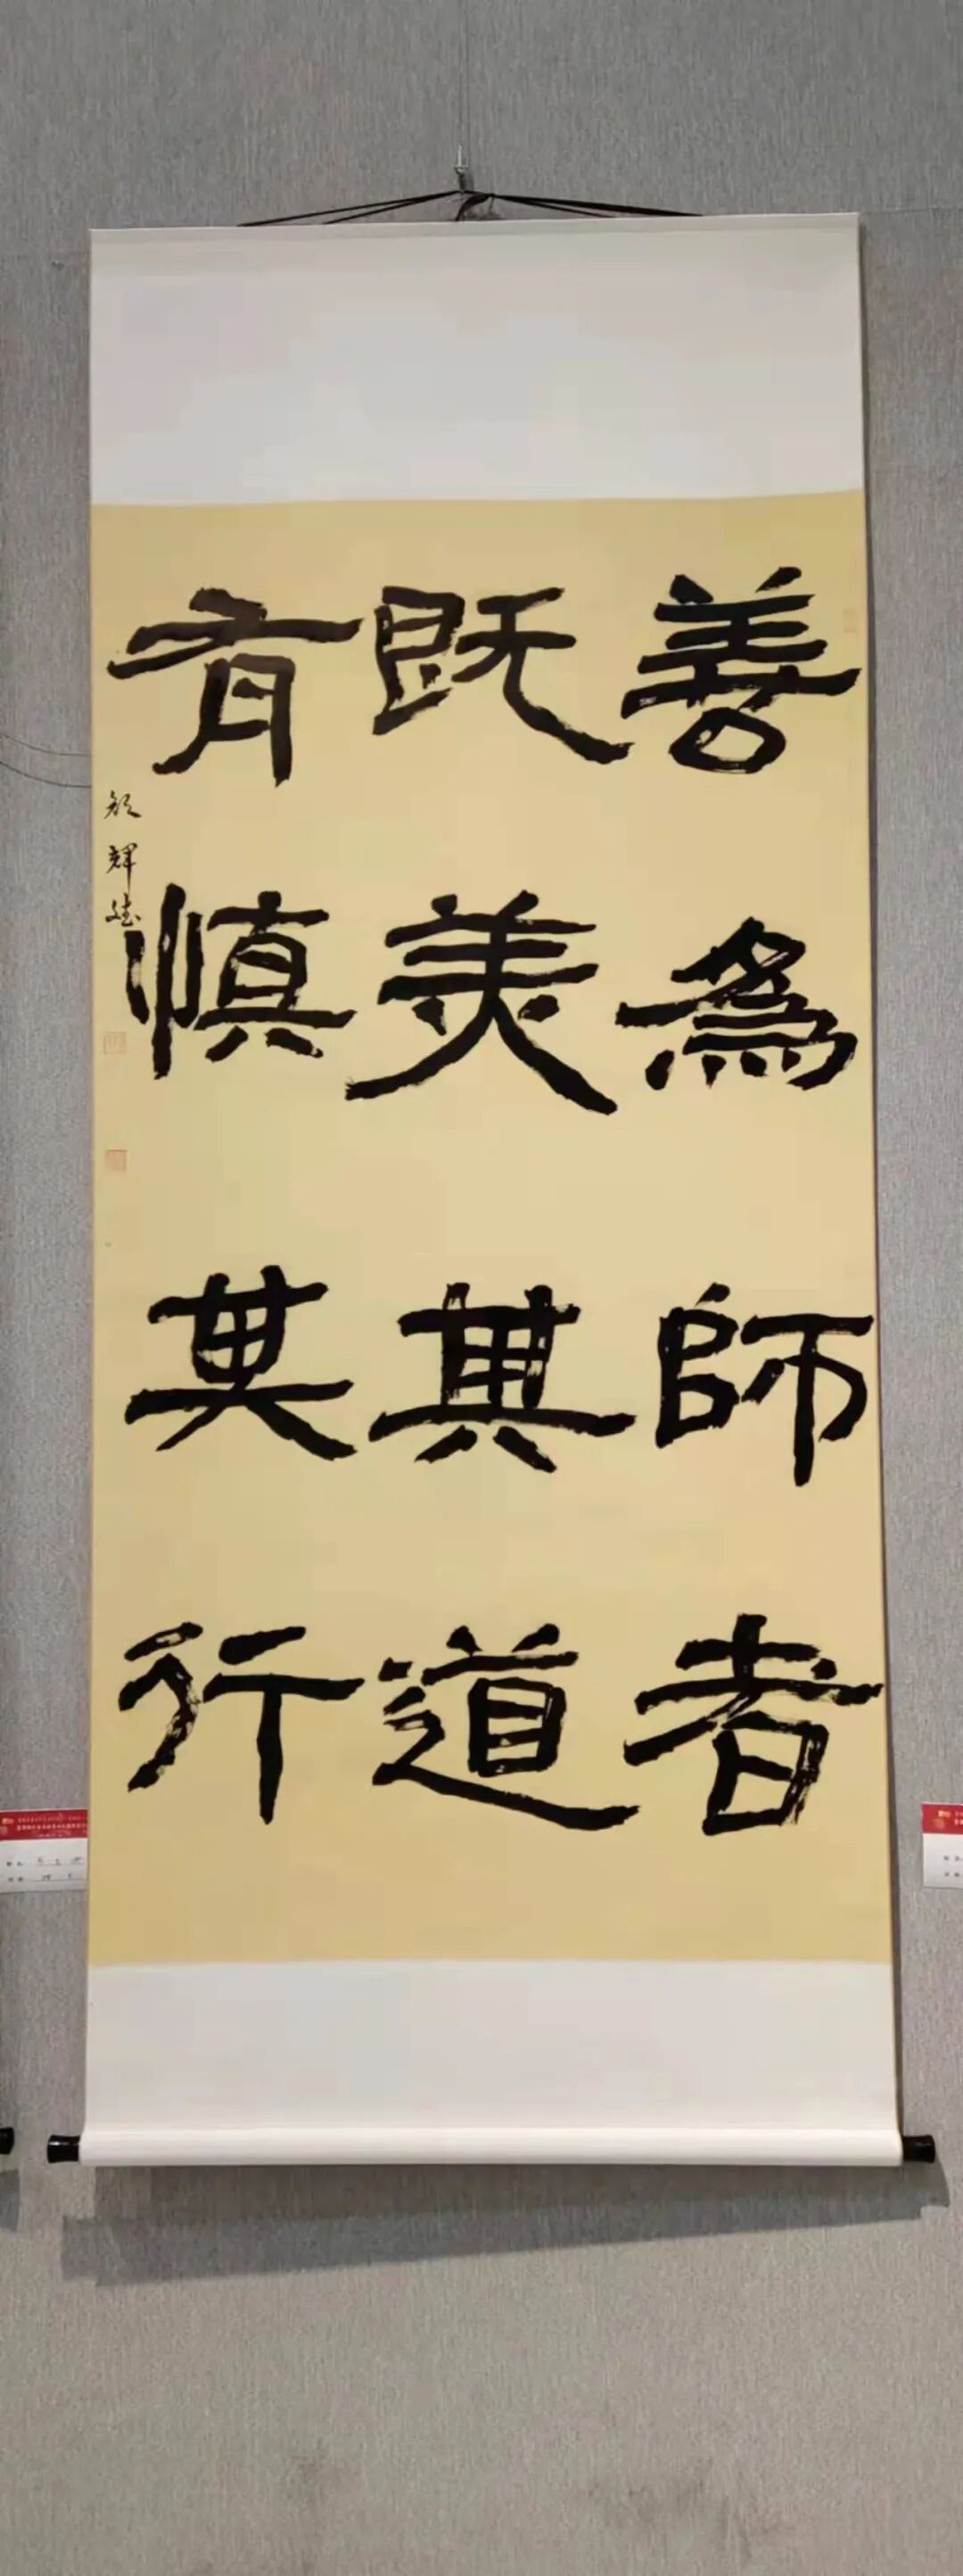 善為師者
既美其道
有慎其行